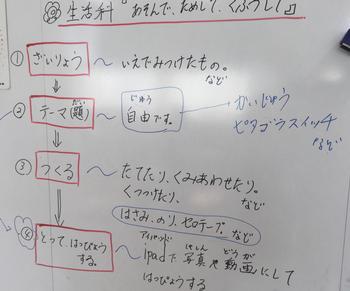 生活科 『あそんで、ためして、くふうして』
① ざいりょう 〜 いえでみつけたもの。
など
② テーマ(題) 〜 自由です。 → かいじゅう
だい
じゆう
ピタゴラスイッチ
など
③ つくる 〜 たてたり、くみあわせたり。
くっつけたり、 など
はさみ、のり、セロテープ、など
④ とって、はっぴょうする。
アイパッド しゃしん どうが
ipadで写真や動画にして
はっぴょうする